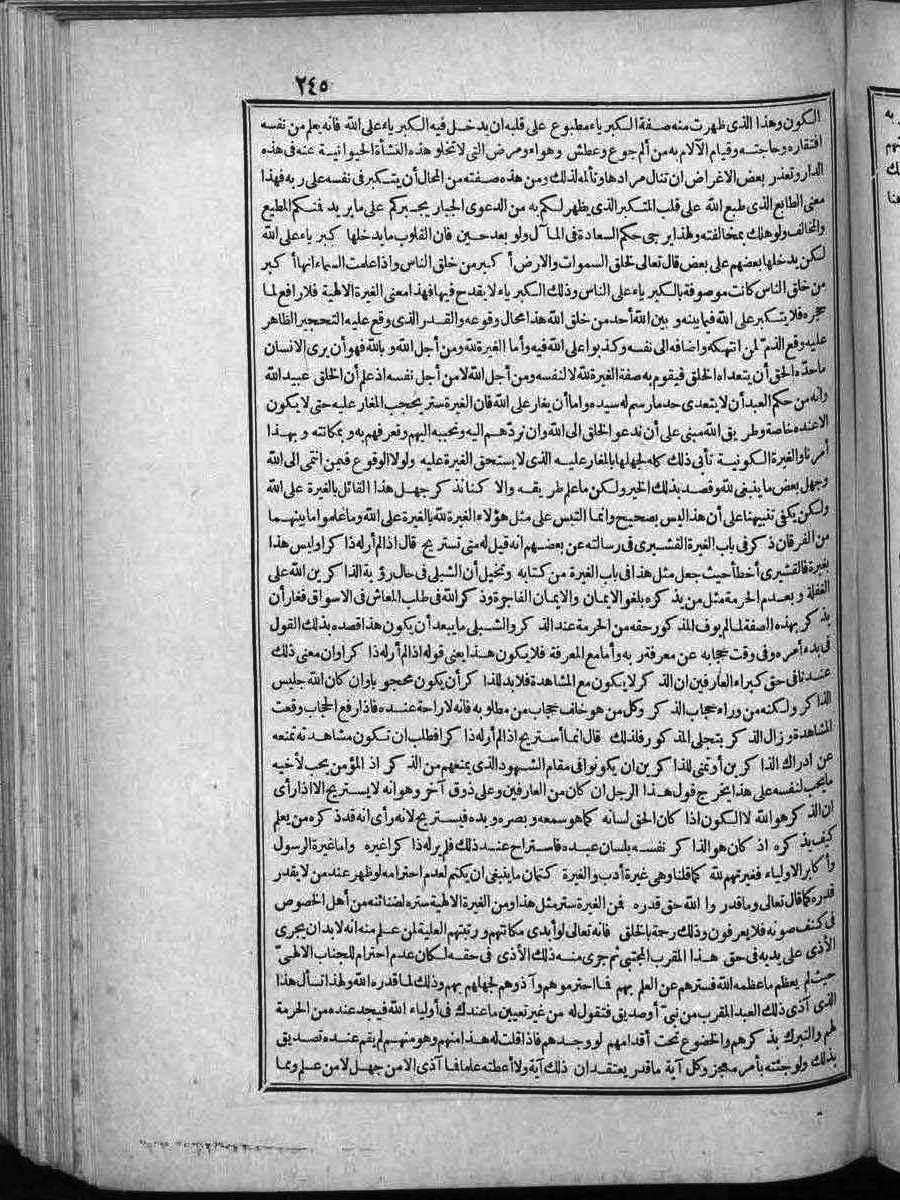 ٢٤٥
الكون وهذا الذى ظهرت منه صفة الكبرياء مطبوع على قلبه ان يدخل فيه الكبرياء على الله فانه يعلم من نفسه
افتقاره وحاجته وقيام الآلام به من ألم جوع وعطش وهواء ومرض التى لا تخلو هذه النشأة الحيوانية عنه فى هذه
الدار وتعذر بعض الاغراض ان تنال مرادها وتألمه لذلك ومن هذه صفته من المحال أن يتكبر فى نفسه على ربه فهذا
معنى الطابع الذى طبع الله على قلب المتكبر الذى يظهر لكم به من الدعوى الجبار يجبركم على ما يريد فمنكم المطيع
والمخالف ولو هلك بمخالفته ولهذا يرجى حكم السعادة فى المآل ولو بعد حين فان القلوب ما يدخلها كبرياء على الله
لكن يدخلها بعضهم على بعض قال تعالى لخلق السموات والارض أكبر من خلق الناس واذا علمت السماء انها أكبر
من خلق الناس كانت موصوفة بالكبرياء على الناس وذلك الكبرياء لا يقدح فيها فهذا معنى الغيرة الالهية فلا رافع لما
حجره فلا يتكبر على الله فيما بينه وبين الله أحد من خلق الله هذا محال وقوعه والقدر الذى وقع عليه التحجير الظاهر
عليه وقع الذم لمن انتهكه واضافه الى نفسه وكذبوا على الله فيه وأما الغيرة لله ومن أجل الله وبالله فهو أن يرى الانسان
ما حده الحق أن يتعداه الخلق فيقوم به صفة الغيرة لله لا لنفسه ومن أجل الله لا من أجل نفسه اذ علم أن الخلق عبيد الله
وانه من حكم العبد أن لا يتعدى حد ما رسم له سيده واما أن يغار على الله فان الغيرة ستر يحجب المغار عليه حتى لا يكون
الا عنده خاصة وطريق الله مبنى على أن ندعو الخلق الى الله وان نردّهم اليه ونحببه اليهم ونعرفهم به وبمكانته وبهذا
أمرنا والغيرة الكونية تأبى ذلك كله لجهلها بالمغار عليه الذى لا يستحق الغيرة عليه ولولا الوقوع فيمن انتمى الى الله
وجهل بعض ما ينبغى لله وقصد بذلك الخير ولكن ما علم طريقه والا كنا نذكر جهل هذا القائل بالغيرة على الله
ولكن يكفى تنبيهنا على أن هذا ليس بصحيح وانما التبس على مثل هؤلاء الغيرة لله بالغيرة على الله وما علموا ما بينهما
من الفرقان ذكر فى باب الغيرة القشيرى فى رسالته عن بعضهم انه قيل له متى تستريح قال اذا لم أر له ذاكرا وليس هذا
بغيرة فالقشيرى أخطأ حيث جعل مثل هذا فى باب الغيرة من كتابه وتخيل أن الشبلى فى حال رؤية الذاكرين الله على
الغفلة وبعدم الحرمة مثل من يذكره بلغو الايمان والايمان الفاجرة وذكر الله فى طلب المعاش فى الاسواق فغار أن
يذكر بهذه الصفة لما لم يوف المذكور حقه من الحرمة عند الذكر والشبلى ما يبعد أن يكون هذا قصده بذلك القول
فى بدء أمره وفى وقت حجابه عن معرفة ربه وأما مع المعرفة فلا يكون هذا يعنى قوله اذا لم أر له ذاكرا وان معنى ذلك
عندنا فى حق كبراء العارفين ان الذكر لا يكون مع المشاهدة فلا بد للذاكر أن يكون محجوبا وان كان الله جليس
الذاكر ولكنه من وراء حجاب الذكر وكل من هو خلف حجاب من مطلوبه فانه لا راحة عنده فاذا رفع الحجاب وقعت
المشاهدة وزال الذكر بتجلى المذكور فلذلك قال انما أستريح اذا لم أر له ذاكرا فطلب ان تكون مشاهدته تمنعه
عن ادراك الذاكرين أو تمنى للذاكرين ان يكونوا فى مقام الشهود الذى يمنعهم من الذكر اذ المؤمن يحب لأخيه
ما يحب لنفسه على هذا يخرج قول هذا الرجل ان كان من العارفين وعلى ذوق آخر وهو انه لا يستريح الا اذا رأى
ان الذكر هو الله لا الكون اذا كان الحق لسانه كما هو سمعه وبصره ويده فيستريح لانه رأى انه قد ذكره من يعلم
كيف يذكره اذ كان هو الذاكر نفسه بلسان عبده فاستراح عند ذلك فلم ير له ذاكرا غيره واما غيرة الرسول
وأكابر الاولياء فغيرتهم لله كما قلنا وهى غيرة أدب والغيرة كتمان ما ينبغى ان يكتم لعدم احترامه لو ظهر عند من لا يقدر
قدره كما قال تعالى وما قدروا الله حق قدره فمن الغيرة ستر مثل هذا ومن الغيرة الالهية ستره لضنائنه من أهل الخصوص
فى كنف صونه فلا يعرفون وذلك رحمة بالخلق فانه تعالى لو أبدى مكانتهم ورتبتهم العلية لمن علم منه انه لا بد ان يجرى
الأذى على يديه فى حق هذا المقرب المجتبى ثم جرى منه ذلك الأذى فى حقه لكان عدم احترام للجناب الالهىّ
حيث لم يعظم ما عظمه الله فسترهم عن العلم بهم فما احترموهم وآذوهم لجهلهم بهم وذلك لما قدره الله ولهذا نسأل هذا
الذى آذى ذلك العبد المقرب من نبىّ أو صديق فنقول له من غير تعيين ما عندك فى أولياء الله فيجد عنده من الحرمة
لهم والتبرك بذكرهم والخضوع تحت أقدامهم لو وجدهم فاذا قلت له هذا منهم وهو منهم لم يقم عنده تصديق
بذلك ولو جئته بأمر معجز وكل آية ما قدر يعتقد ان ذلك آية ولا أعطته علما فما آذى الا من جهل لا من علم ومما